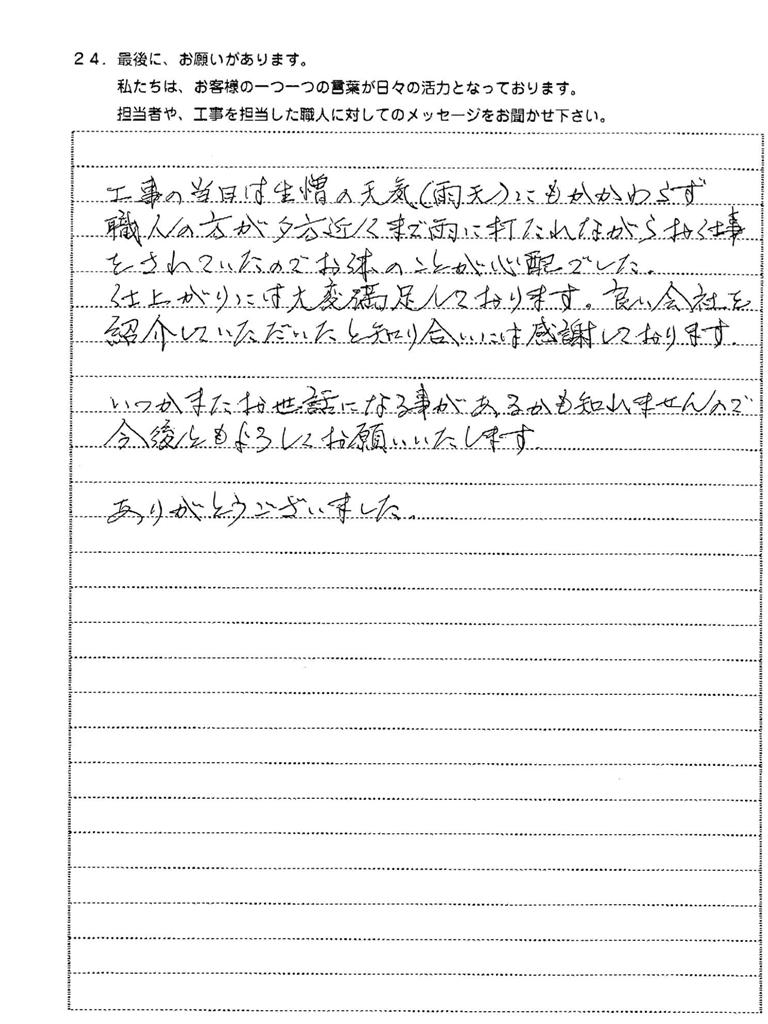 24．最後に、お願いがあります。
私たちは、お客様の一つ一つの言葉が日々の活力となっております。
担当者や、工事を担当した職人に対してのメッセージをお聞かせ下さい。
工事の当日は生憎の天気（雨天）にもかかわらず
職人の方が夕方近くまで雨に打たれながらお仕事
をされていたのでお体のことが心配でした。
仕上がりには大変満足しております。良い会社を
紹介していただいたと知り合いには感謝しております。
いつかまたお世話になる事があるかも知れませんので
今後ともよろしくお願いいたします。
ありがとうございました。